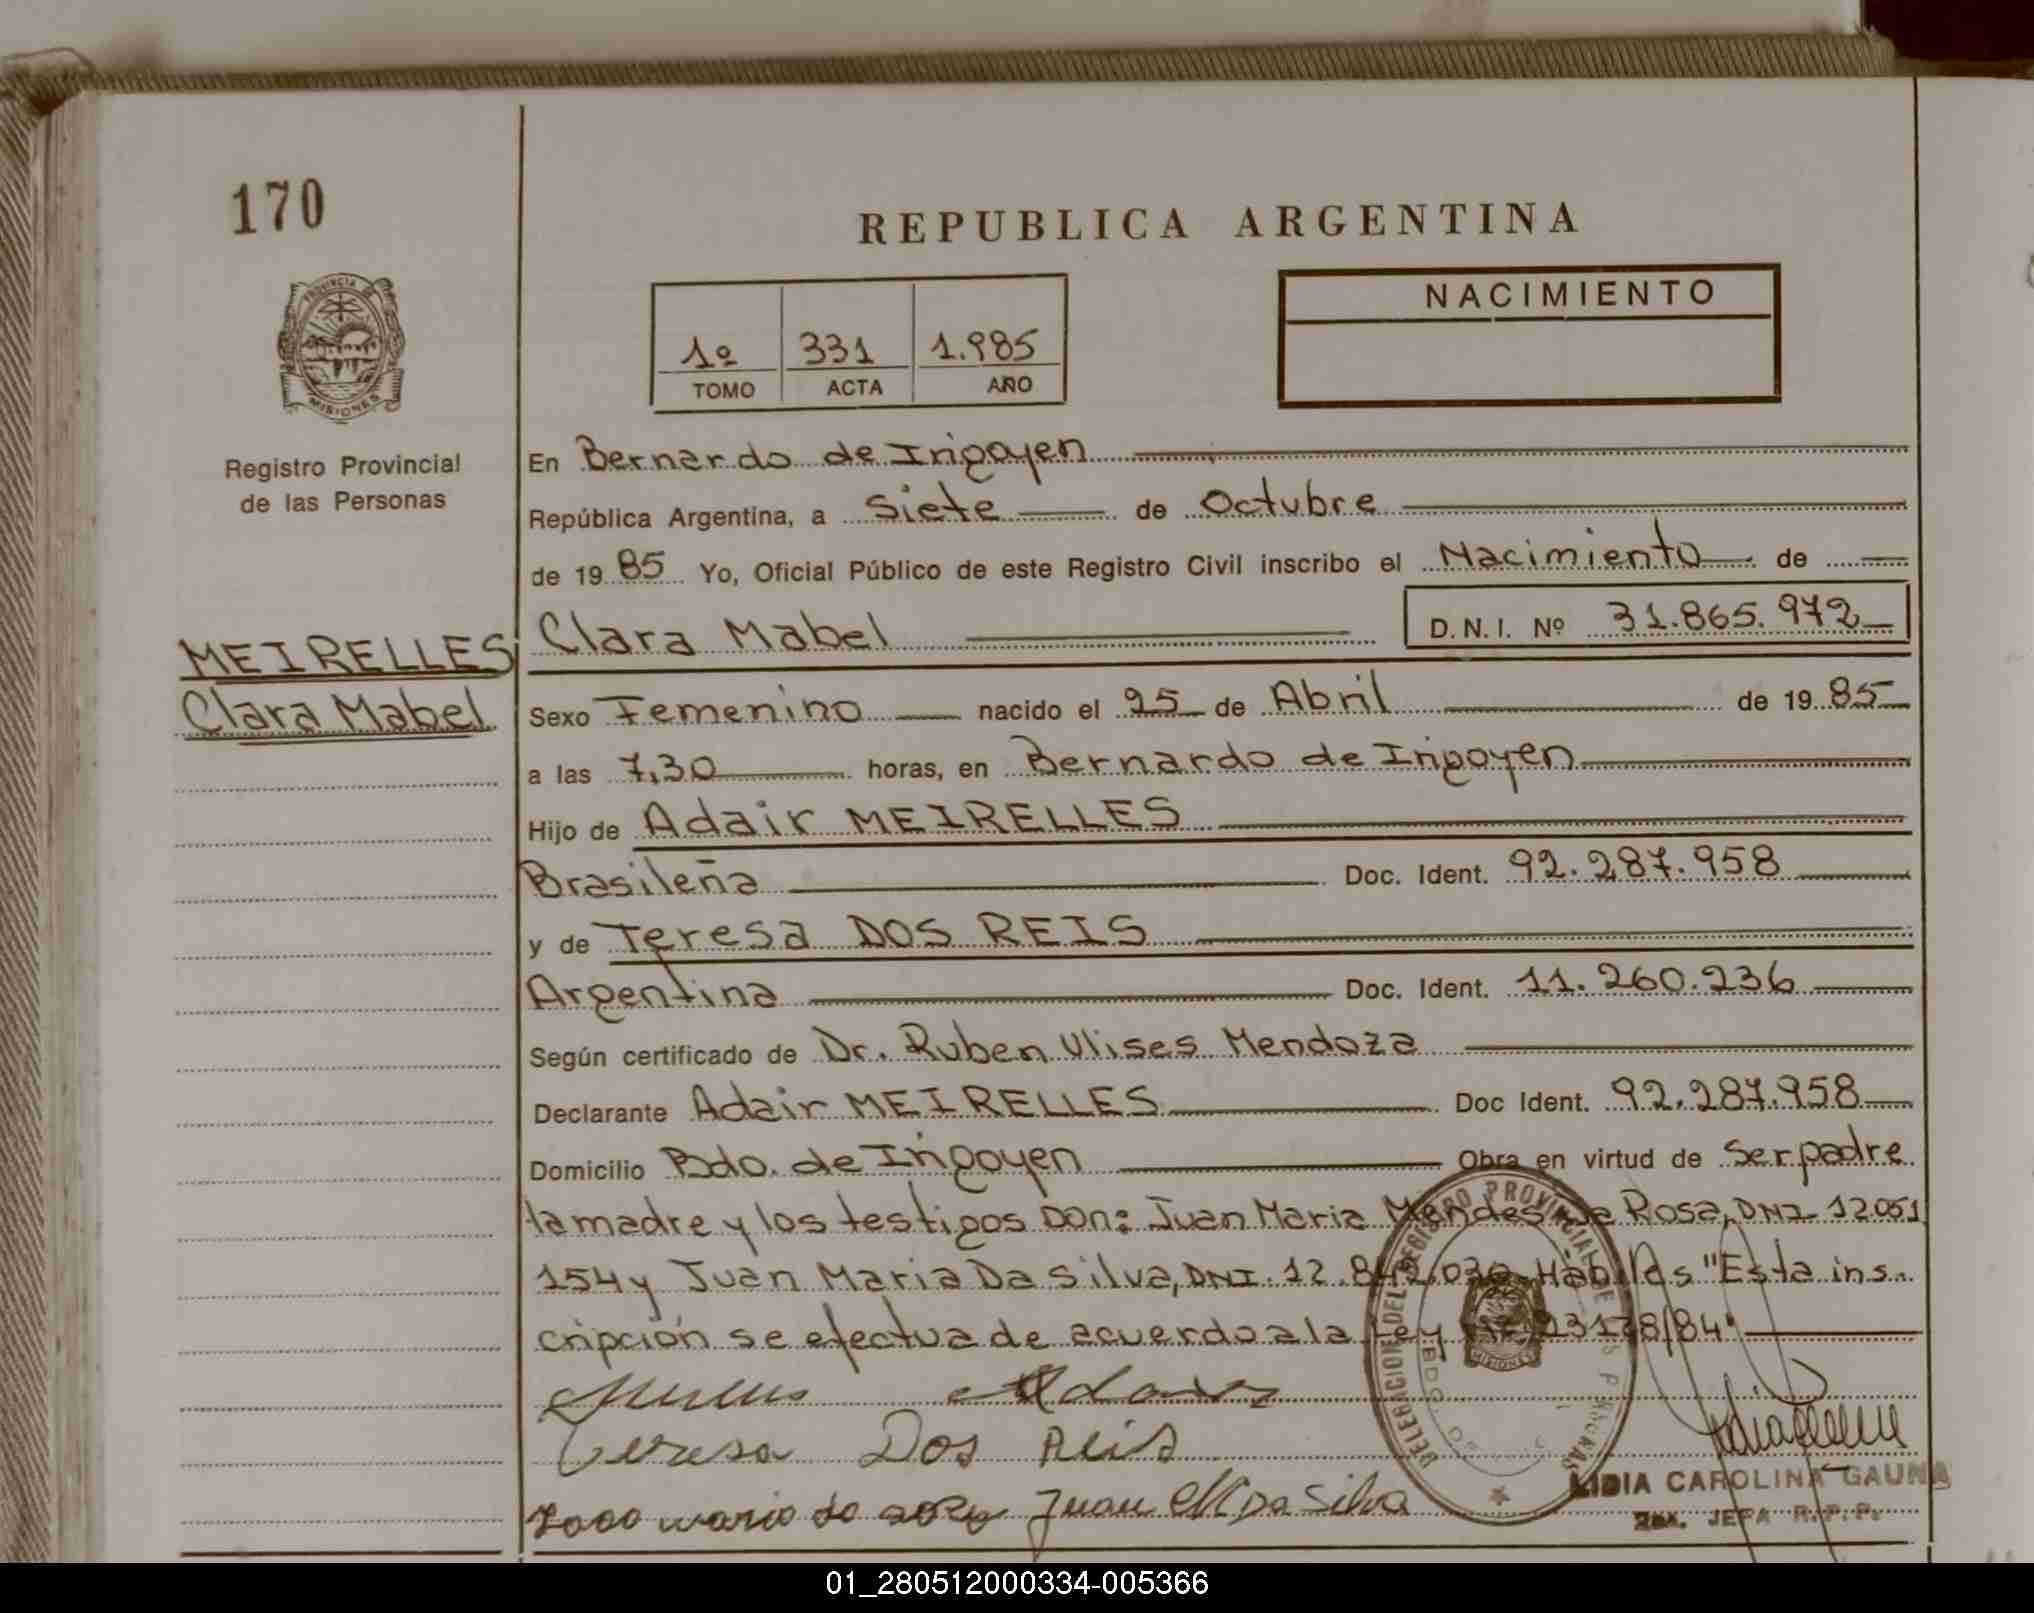 170
REPUBLICA ARGENTINA
PROVINCIA DE
MISIONES
NACIMIENTO
1º 331 1.985
TOMO ACTA AÑO
Registro Provincial
de las Personas
En Bernardo de Irigoyen
República Argentina, a siete de Octubre
de 1985 Yo, Oficial Público de este Registro Civil inscribo el Nacimiento de
MEIRELLES
Clara Mabel
Clara Mabel D.N.I. Nº 31.865.972
Sexo Femenino nacido el 25 de Abril de 1985
a las 7,30 horas, en Bernardo de Irigoyen
Hijo de Adair MEIRELLES
Brasileña Doc. Ident. 92.287.958
y de Teresa DOS REIS
Argentina Doc. Ident. 11.260.236
Según certificado de Dr. Ruben Ulises Mendoza
Declarante Adair MEIRELLES Doc Ident. 92.287.958
Domicilio Bdo. de Irigoyen Obra en virtud de ser padre
la madre y los testigos Don: Juan Maria Mendes Da Rosa, DNI 12.051
154 y Juan Maria Da Silva, DNI. 12. Hábiles "Esta ins-
cripción se efectua de acuerdo a la Ley Nº 23128/84"
Teresa Dos Reis
Juan M Da Silva
DELEGACION DEL REGISTRO PROVINCIAL DE LAS PERSONAS
BDO. DE
MISIONES
LIDIA CAROLINA GAUNA
JEFA R.P.P.
01_280512000334-005366